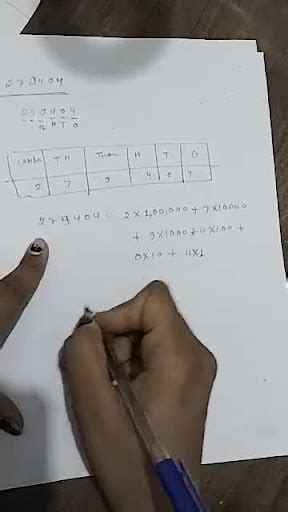 279404
2 7 9 4 0 4
Th H T O
Lakhs T.H Thou H T O
2 7 9 4 0 4
279404 = 2×1,00,000 + 7×10000
+ 9×1000 + 4×100 +
0×10 + 4×1